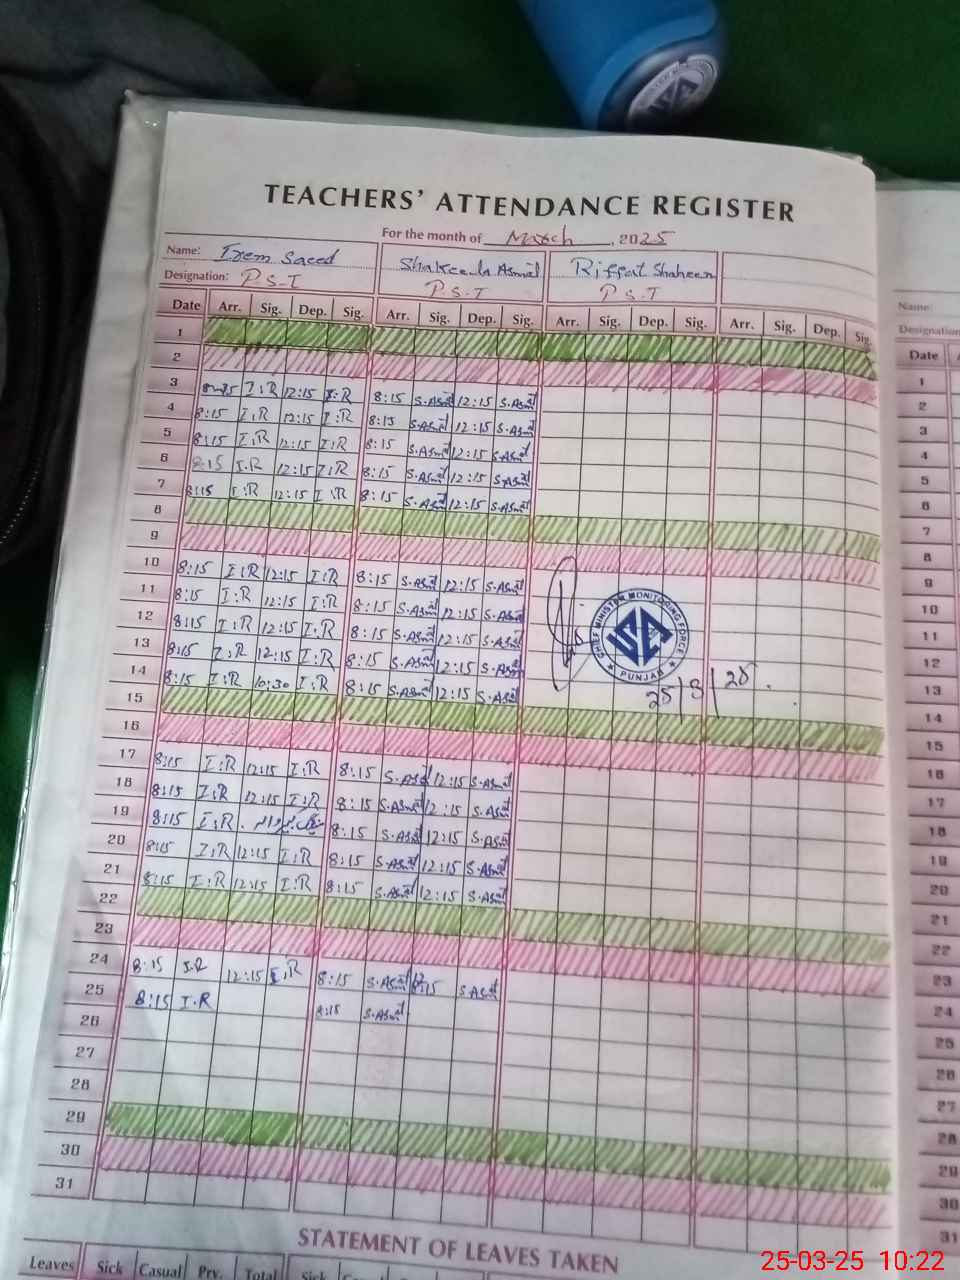 TEACHERS' ATTENDANCE REGISTER
For the month of March, 2025
Name: Irem Saeed Shakeela Asmat Riffat Shaheen
Designation: P.S.T P.S.T P.S.T
Date Arr. Sig. Dep. Sig. Arr. Sig. Dep. Sig. Arr. Sig. Dep. Sig. Arr. Sig. Dep. Sig.
1
2
3 8:15 I:R 12:15 I:R 8:15 S.Asmat 12:15 S.Asmat
4 8:15 I:R 12:15 I:R 8:15 S.Asmat 12:15 S.Asmat
5 8:15 I:R 12:15 I:R 8:15 S.Asmat 12:15 S.Asmat
6 8:15 I.R 12:15 I:R 8:15 S.Asmat 12:15 S.Asmat
7 8:15 I:R 12:15 I:R 8:15 S.Asmat 12:15 S.Asmat
8
9
10 8:15 I:R 12:15 I:R 8:15 S.Asmat 12:15 S.Asmat
11 8:15 I:R 12:15 I:R 8:15 S.Asmat 12:15 S.Asmat
12 8:15 I:R 12:15 I:R 8:15 S.Asmat 12:15 S.Asmat
13 8:15 I:R 12:15 I:R 8:15 S.Asmat 12:15 S.Asmat
14 8:15 I:R 10:30 I:R 8:15 S.Asmat 12:15 S.Asmat
CHIEF MINISTER MONITORING FORCE
PUNJAB
25/3/25.
15
16
17 8:15 I:R 12:15 I:R 8:15 S.Asmat 12:15 S.Asmat
18 8:15 I:R 12:15 I:R 8:15 S.Asmat 12:15 S.Asmat
19 8:15 I:R 8:15 S.Asmat 12:15 S.Asmat
20 8:15 I:R 12:15 I:R 8:15 S.Asmat 12:15 S.Asmat
21 8:15 I:R 12:15 I:R 8:15 S.Asmat 12:15 S.Asmat
22
23
24 8:15 I.R 12:15 I:R 8:15 S.Asmat 12:15 S.Asmat
25 8:15 I.R 8:15 S.Asmat
26
27
28
29
30
31
STATEMENT OF LEAVES TAKEN
Leaves Sick Casual Prv. Total Sick
Name:
Designation
Date
1
2
3
4
5
6
7
8
9
10
11
12
13
14
15
16
17
18
19
20
21
22
23
24
25
26
27
28
29
30
31
25-03-25 10:22